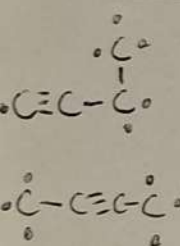 •
•C•
|
•C≡C-C•
•
• •
•C-C≡C-C•
• •